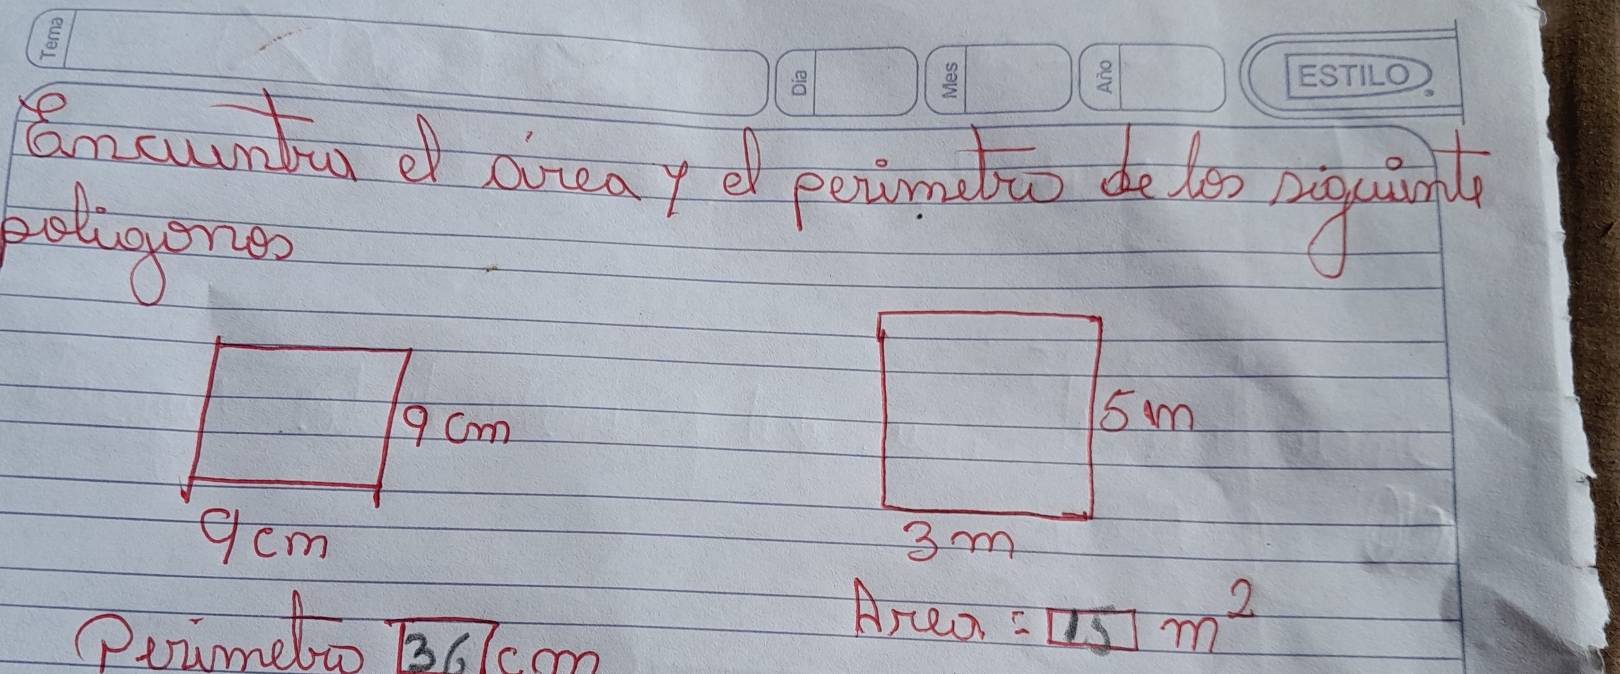 Tema
Día
Mes
Año
ESTILO
Encuentra el área y el perimetro de los siguiente
poligonos
9 cm
5 m
9 cm
3 m
Area = 15 m²
Perimetro 36 cm